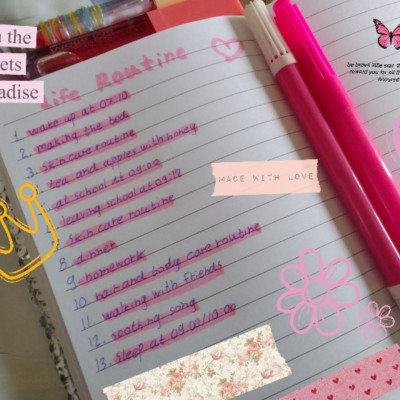 n the
ets
adise
Life Routine
1. wake up at 07.10
2. making the bed
3. skin care routine
4. tea and apples with honey
5. at school at 08:00
6. leaving school at 03:12
7. skin care routine
8. dinner
9. homework
10. hair and body care routine
11. walking with friends
12. sootting song
13. sleep at 09.00/10.00
MADE WITH LOVE